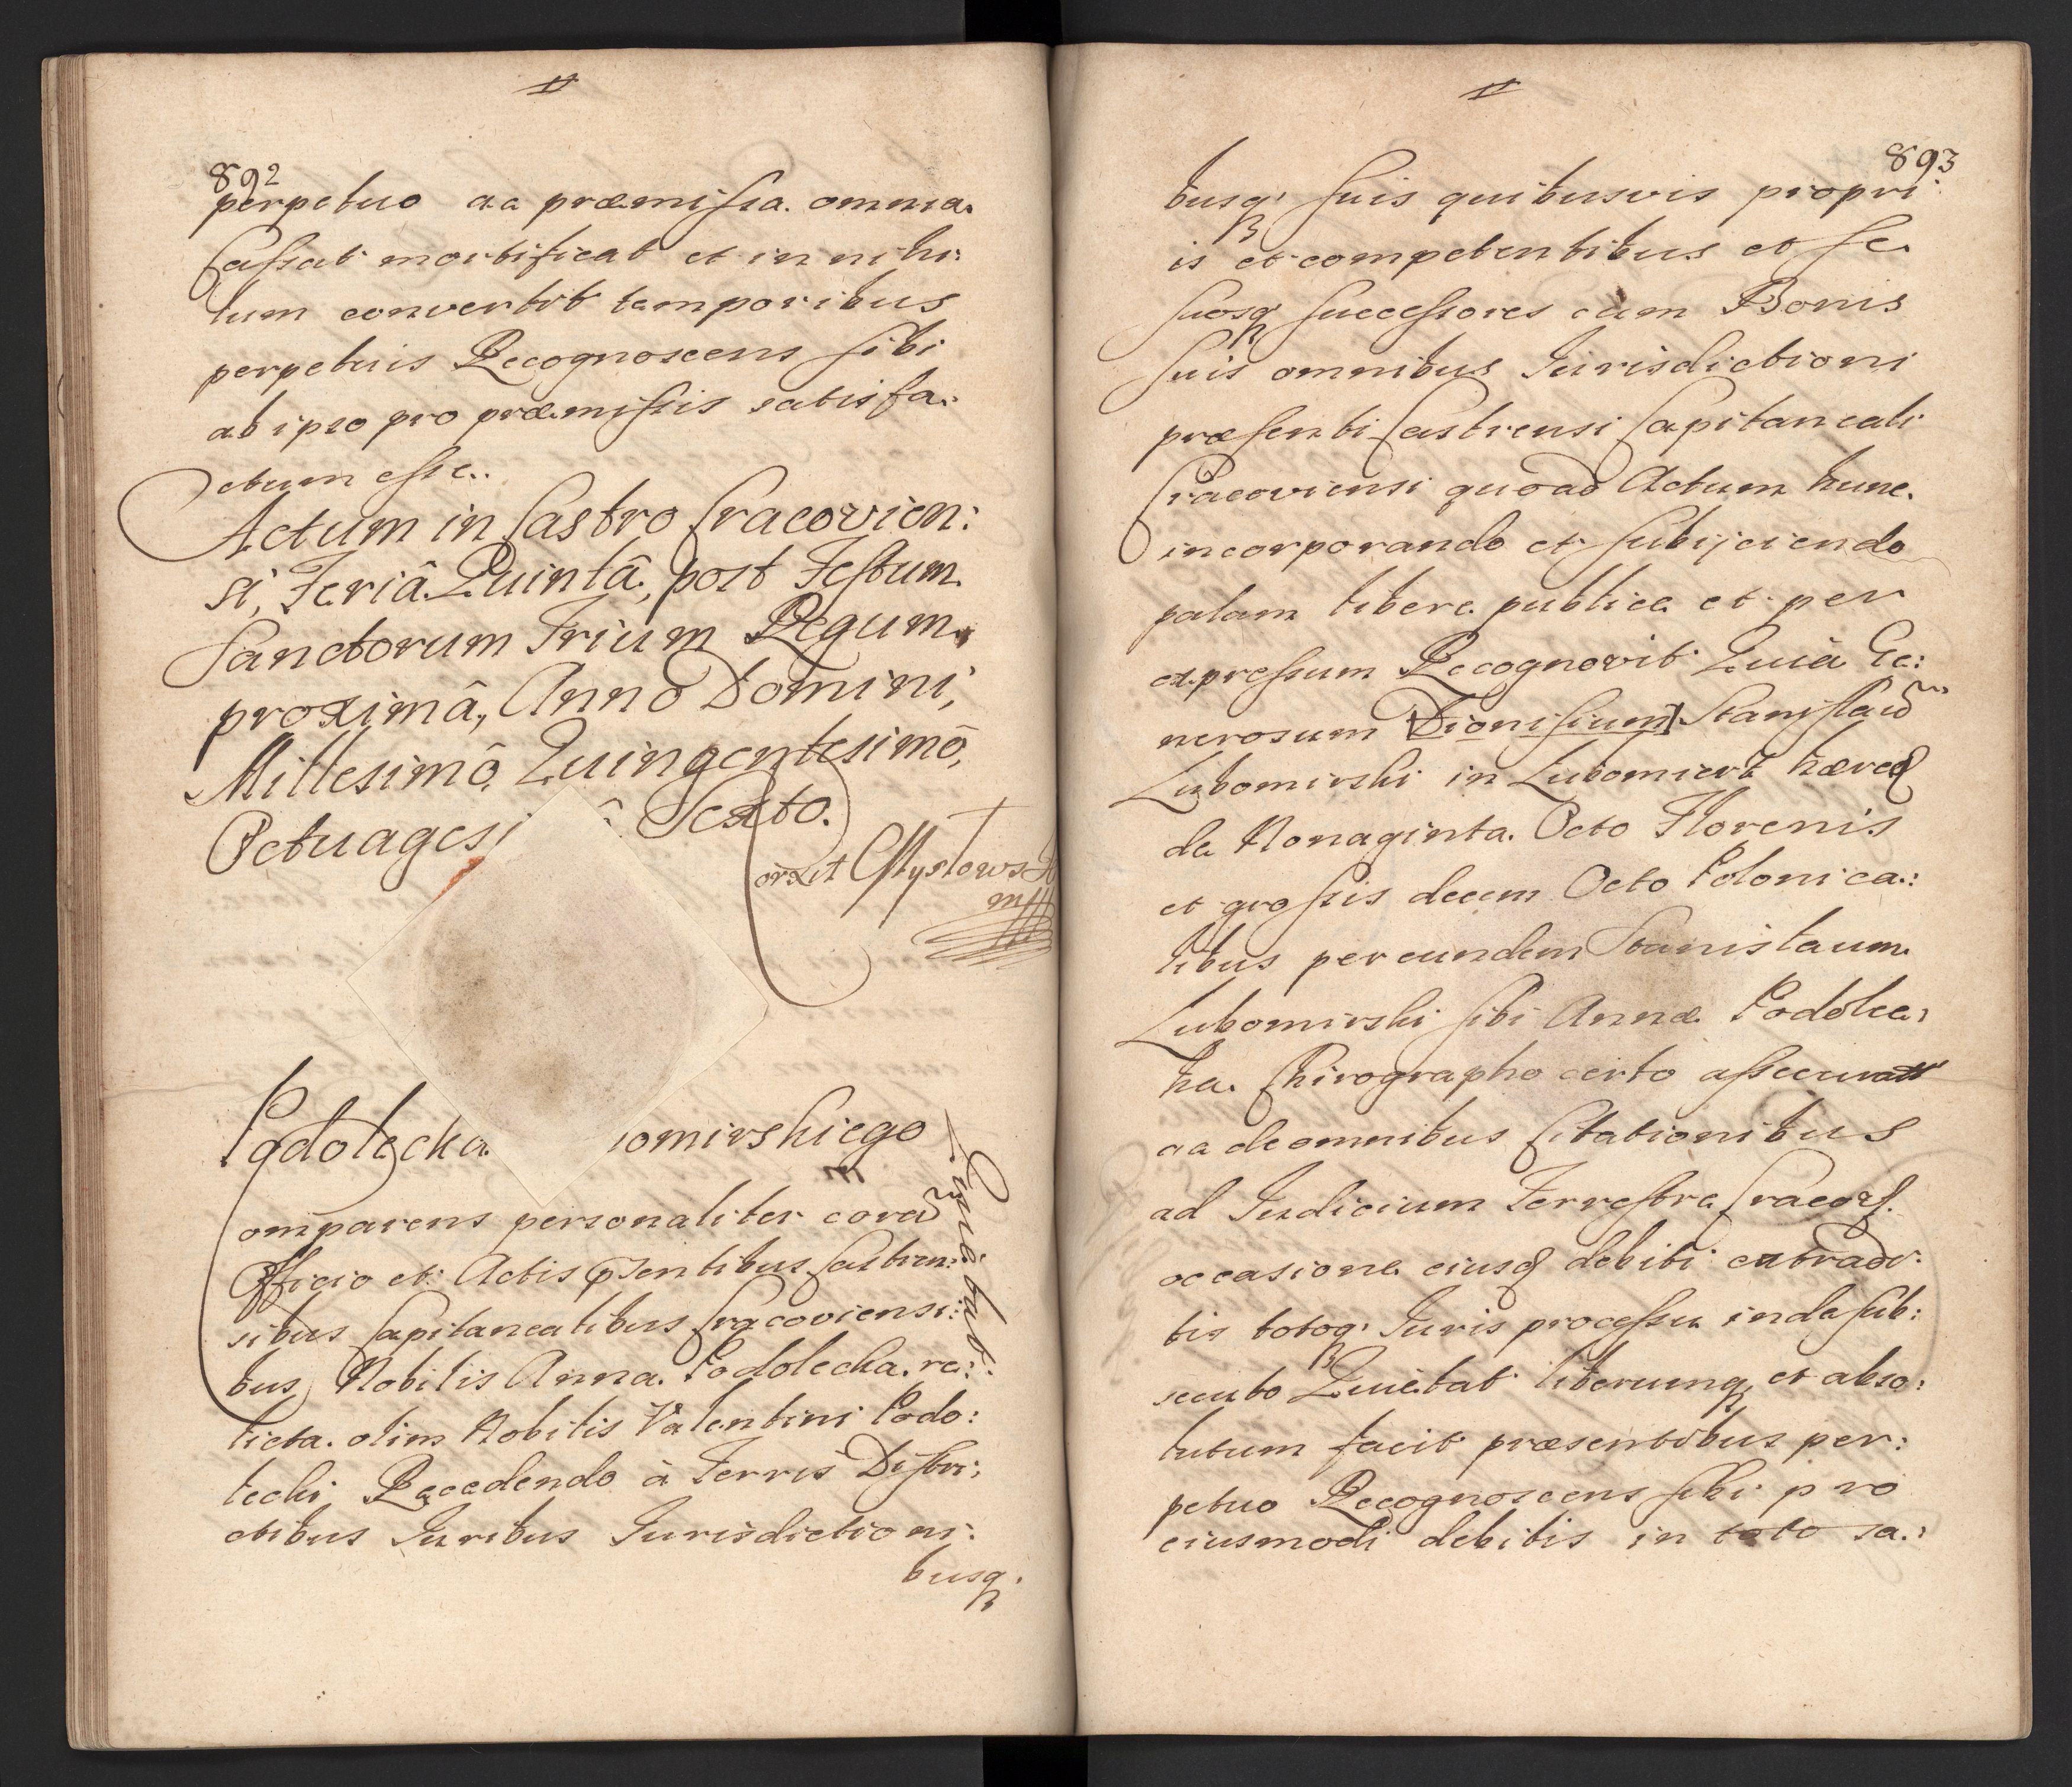 892
perpetuo ac præmissa omnia
Cassat mortificat et in nihi:
lum convertit temporibus
perpetuis Recognoscens sibi
ab ipso pro præmissis satisfa:
ctum esse.
Actum in Castro Cracovien:
si, Feriâ Quintâ, post Festum
Sanctorum Trium Regum
proximâ, Anno Domini,
Millesimô Quingentesimô,
Octuagesi ô Sexto.
Podolecka omirskiego
Quietat.
omparens personaliter corã
Officio et Actis psentibus Castren:
sibus Capitanealibus Cracoviensi:
bus Nobilis Anna Podolecka re:
licta olim Nobilis Valentini Podo:
lecki Recedendo à Terris Distri:
ctibus Juribus Jurisdictioni:
busq
893
busq suis quibusvis propri:
is et competentibus et se
suosq successores cum Bonis
suis omnibus Jurisdictioni
præsenti Castrensi Capitaneali
Cracoviensi quoad Actum hunc
incorporando et subijciendo
palam libere publice et per
expressum Recognovit Quia Ge:
nerosum Dionisium Stanislaũ
Lubomirski in Lubomierz hæred
de Nonaginta Octo Florenis
et grossis decem Octo Polonica:
libus per eundem Stanislaum
Lubomirski sibi Annæ Podolec:
ka Chirographo certo assecurat
ac de omnibus Citationibus
ad Judicium Terrestre Cracov.
occasione eiusd debiti extradi:
tis totoq Juris processu inde sub:
secuto Quietat liberumq et abso:
lutum facit præsentibus per:
petuo Recognoscens sibi pro
eiusmodi debitis in toto sa: